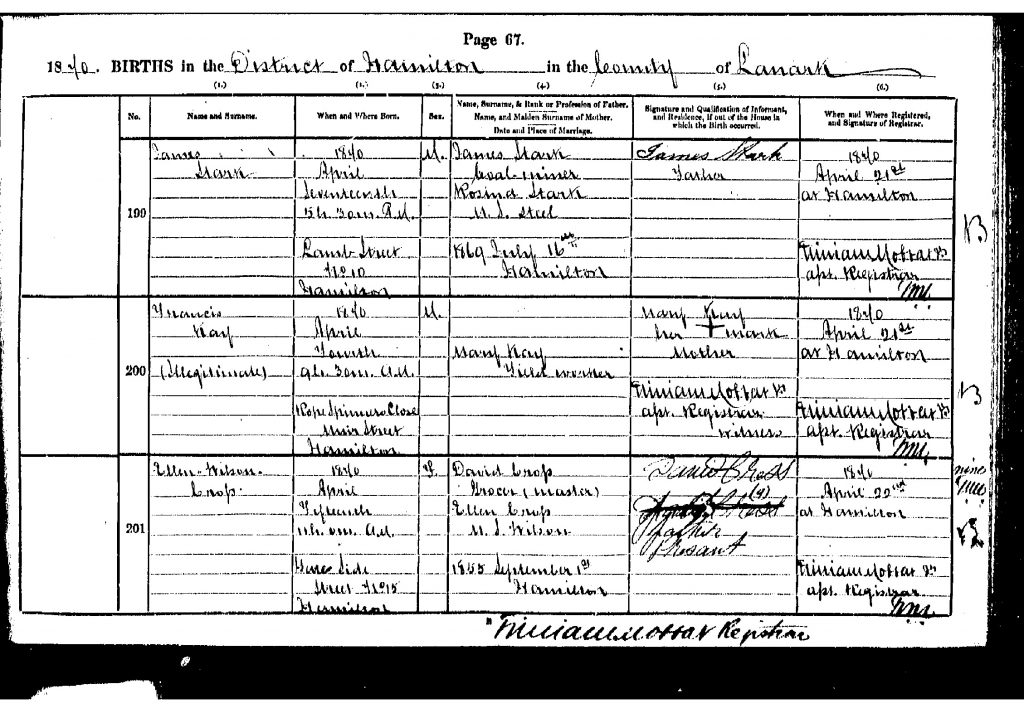 Page 67.
1870. BIRTHS in the District of Hamilton in the County of Lanark
(1.) (2.) (3.) (4.) (5.) (6.)
No. Name and Surname. When and Where Born. Sex. Name, Surname, & Rank or Profession of Father. Name, and Maiden Surname of Mother. Date and Place of Marriage. Signature and Qualification of Informant, and Residence, if out of the House in which the Birth occurred. When and Where Registered, and Signature of Registrar.
199
James
Stark
1870
April
Seventeenth
5h. 30m. P.M.
Lamb Street
No 10
Hamilton
M.
James Stark
Coal-miner
Rosina Stark
M. S. Steel
1869 July 16th
Hamilton
James Stark
Father
1870
April 21st
at Hamilton
asst. Registrar
200
Francis
Kay
(Illegitimate)
1870
April
Fourth
9h. 30m. A.M.
Rope Spinners Close
Muir Street
Hamilton
M.
Mary Kay
Field worker
Mary Kay
her + mark
Mother
asst. Registrar
witness
1870
April 21st
at Hamilton
asst. Registrar
201
Ellen Wilson
Cross
1870
April
11h. 0m. A.M.
Street No 15
Hamilton
F.
David Cross
Grocer (master)
Ellen Cross
M. S. Wilson
1855 September 1st
Hamilton
David Cross
Father
Present
1870
April 22nd
at Hamilton
asst. Registrar
Registrar